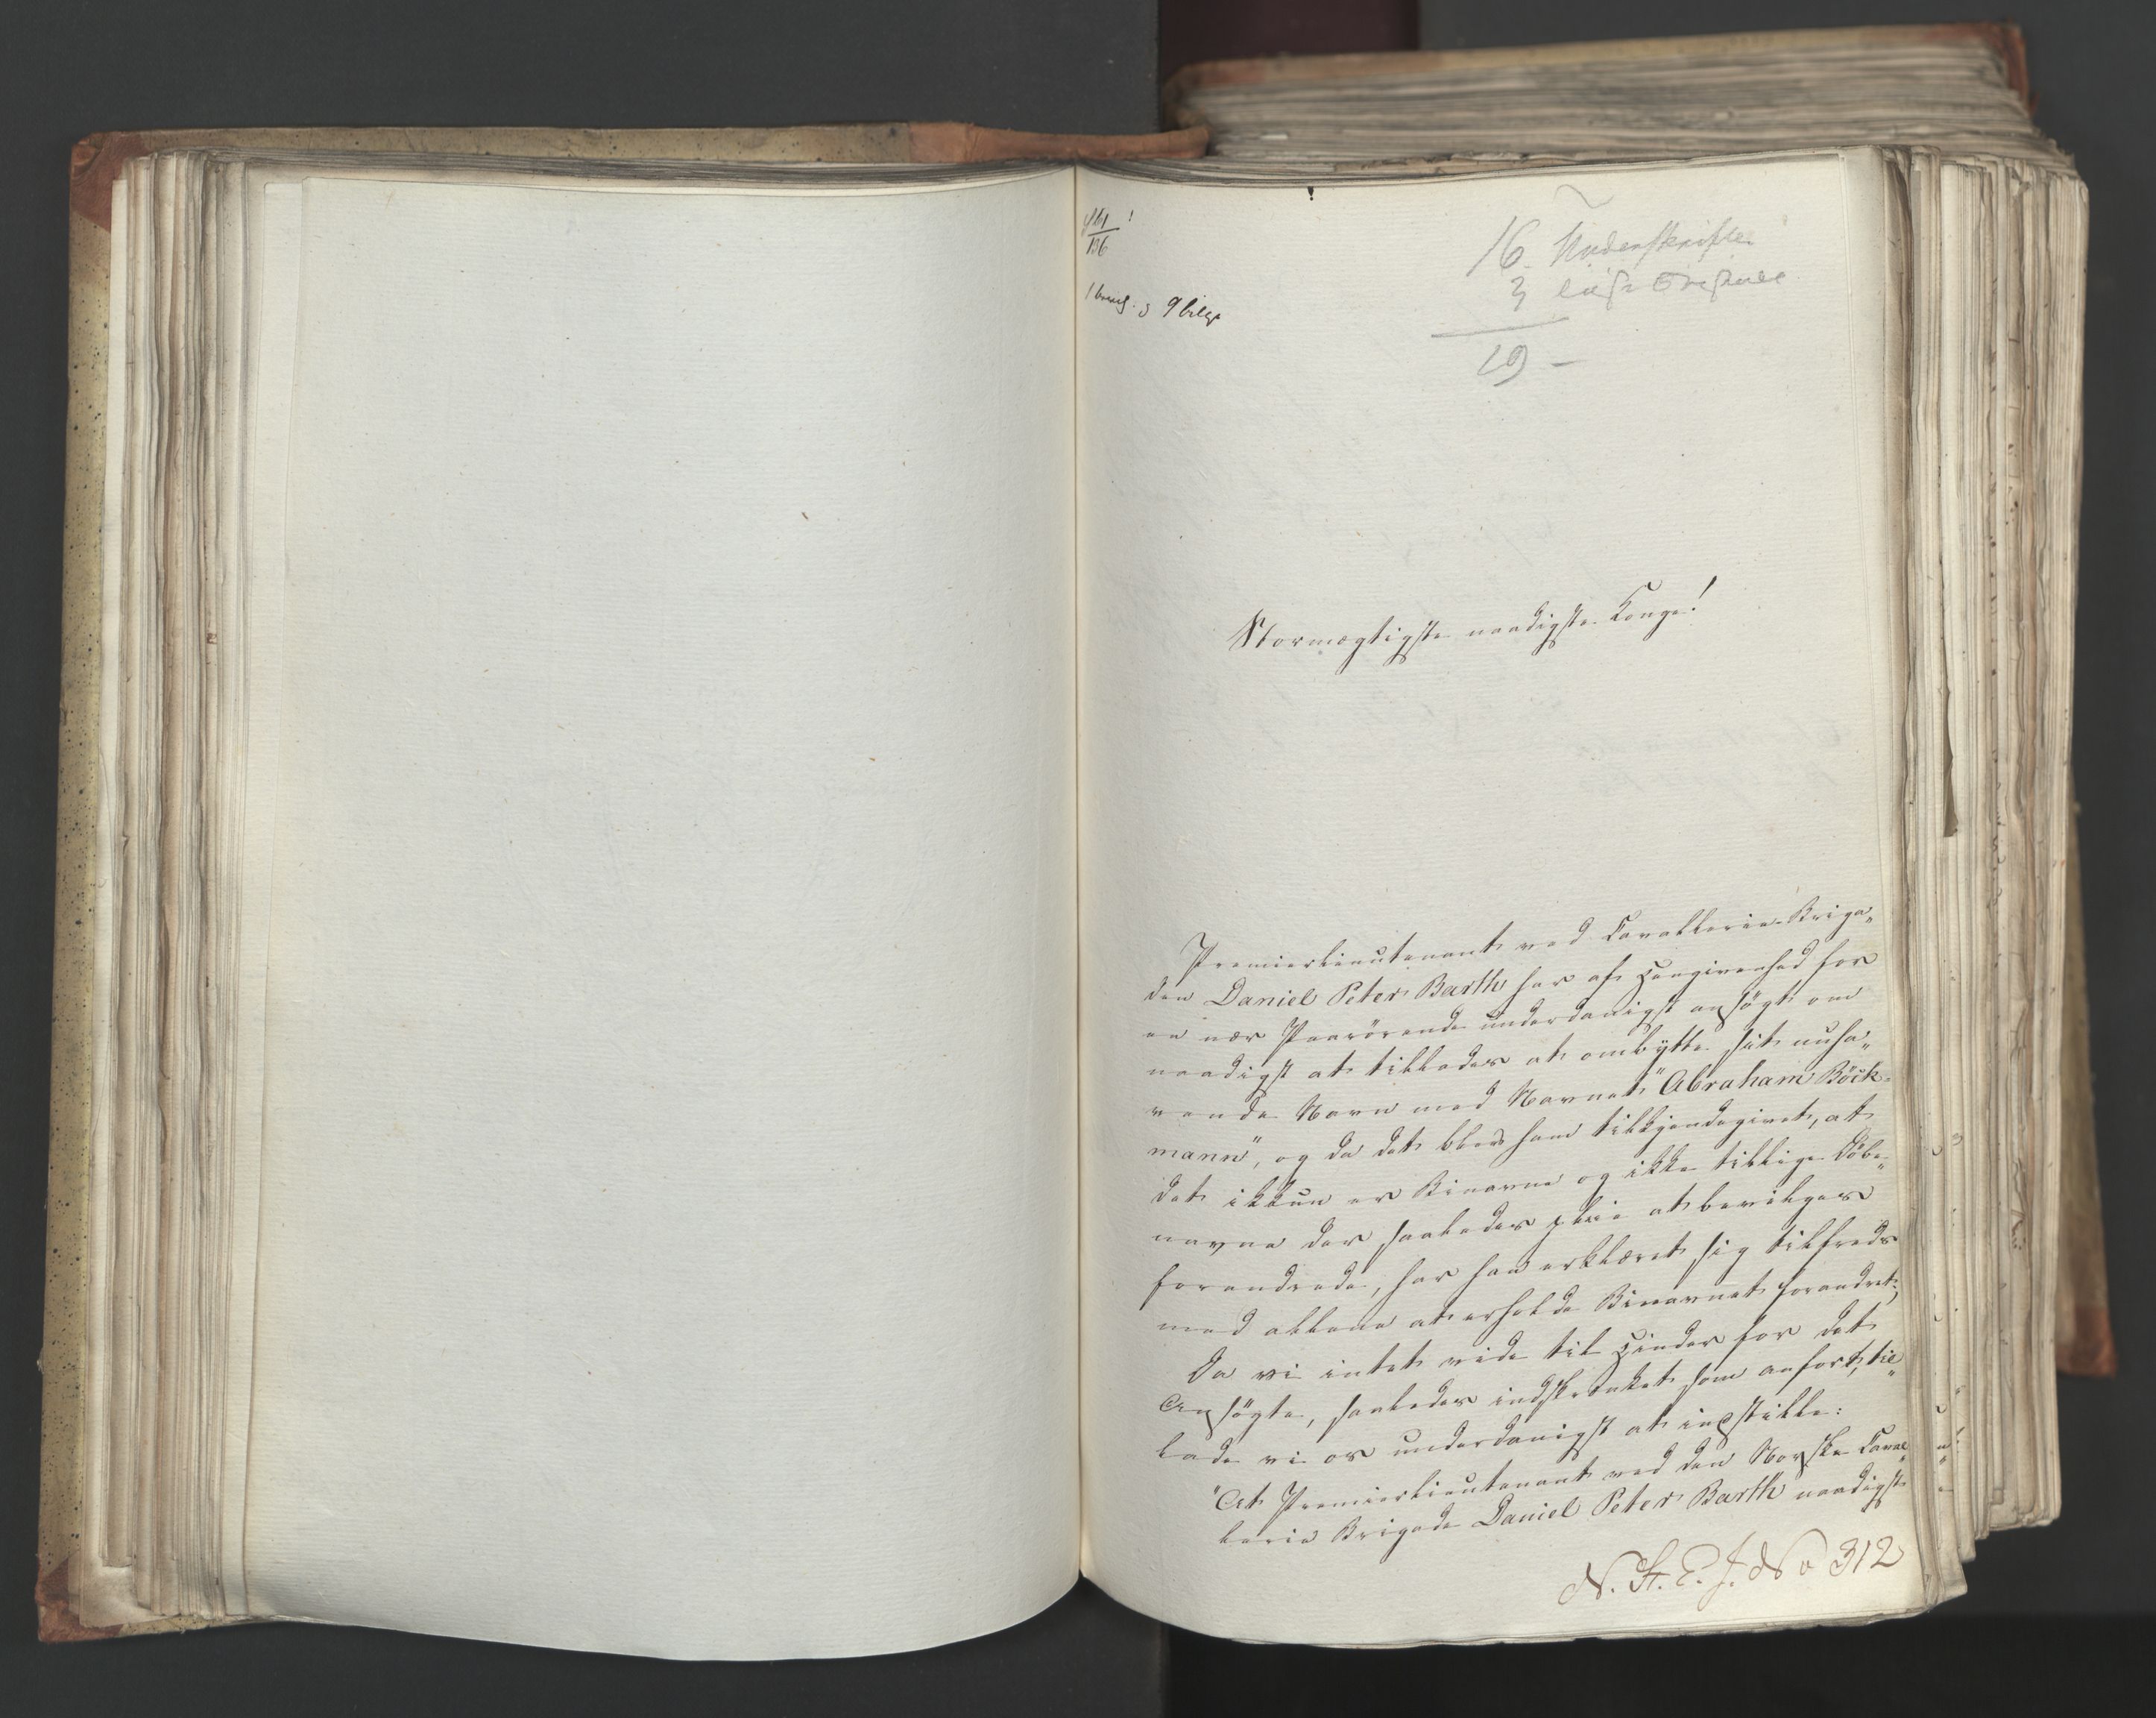 16. Underskrifter
3
19 –
9 bilge
Stormægtigste naadigste Konge!
Premierlieutenant ved Cavallerie-Briga„
den Daniel Peter Barth har af Hengivenhed for
en nær Paarörende underdanigst ansögt om
naadigst at tillades at ombytte sit nuha„
vende Navn med Navnet "Abraham Böck-
mann", og da det blev ham tilkjendegivet, at
det ikkun er Binavne og ikke tillige Döbe„
navne der saaledes pleie at bevilges
forandrede, har han erklæret sig tilfreds
med allene at erholde Binavnet forandret;
Da vi intet vide til Hinder for det
Ansögte, saaledes indskrænket som anfört, til„
lade vi os underdanigst at indstille:
"At Premierlieutenant ved den Norske Caval„
lerie Brigade Daniel Peter Barth naadigst
N. St. E. J. No 312